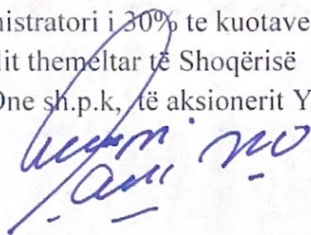 nistratori i 30% te kuotave
lit themeltar të Shoqërisë
One sh.p.k, të aksionerit Y